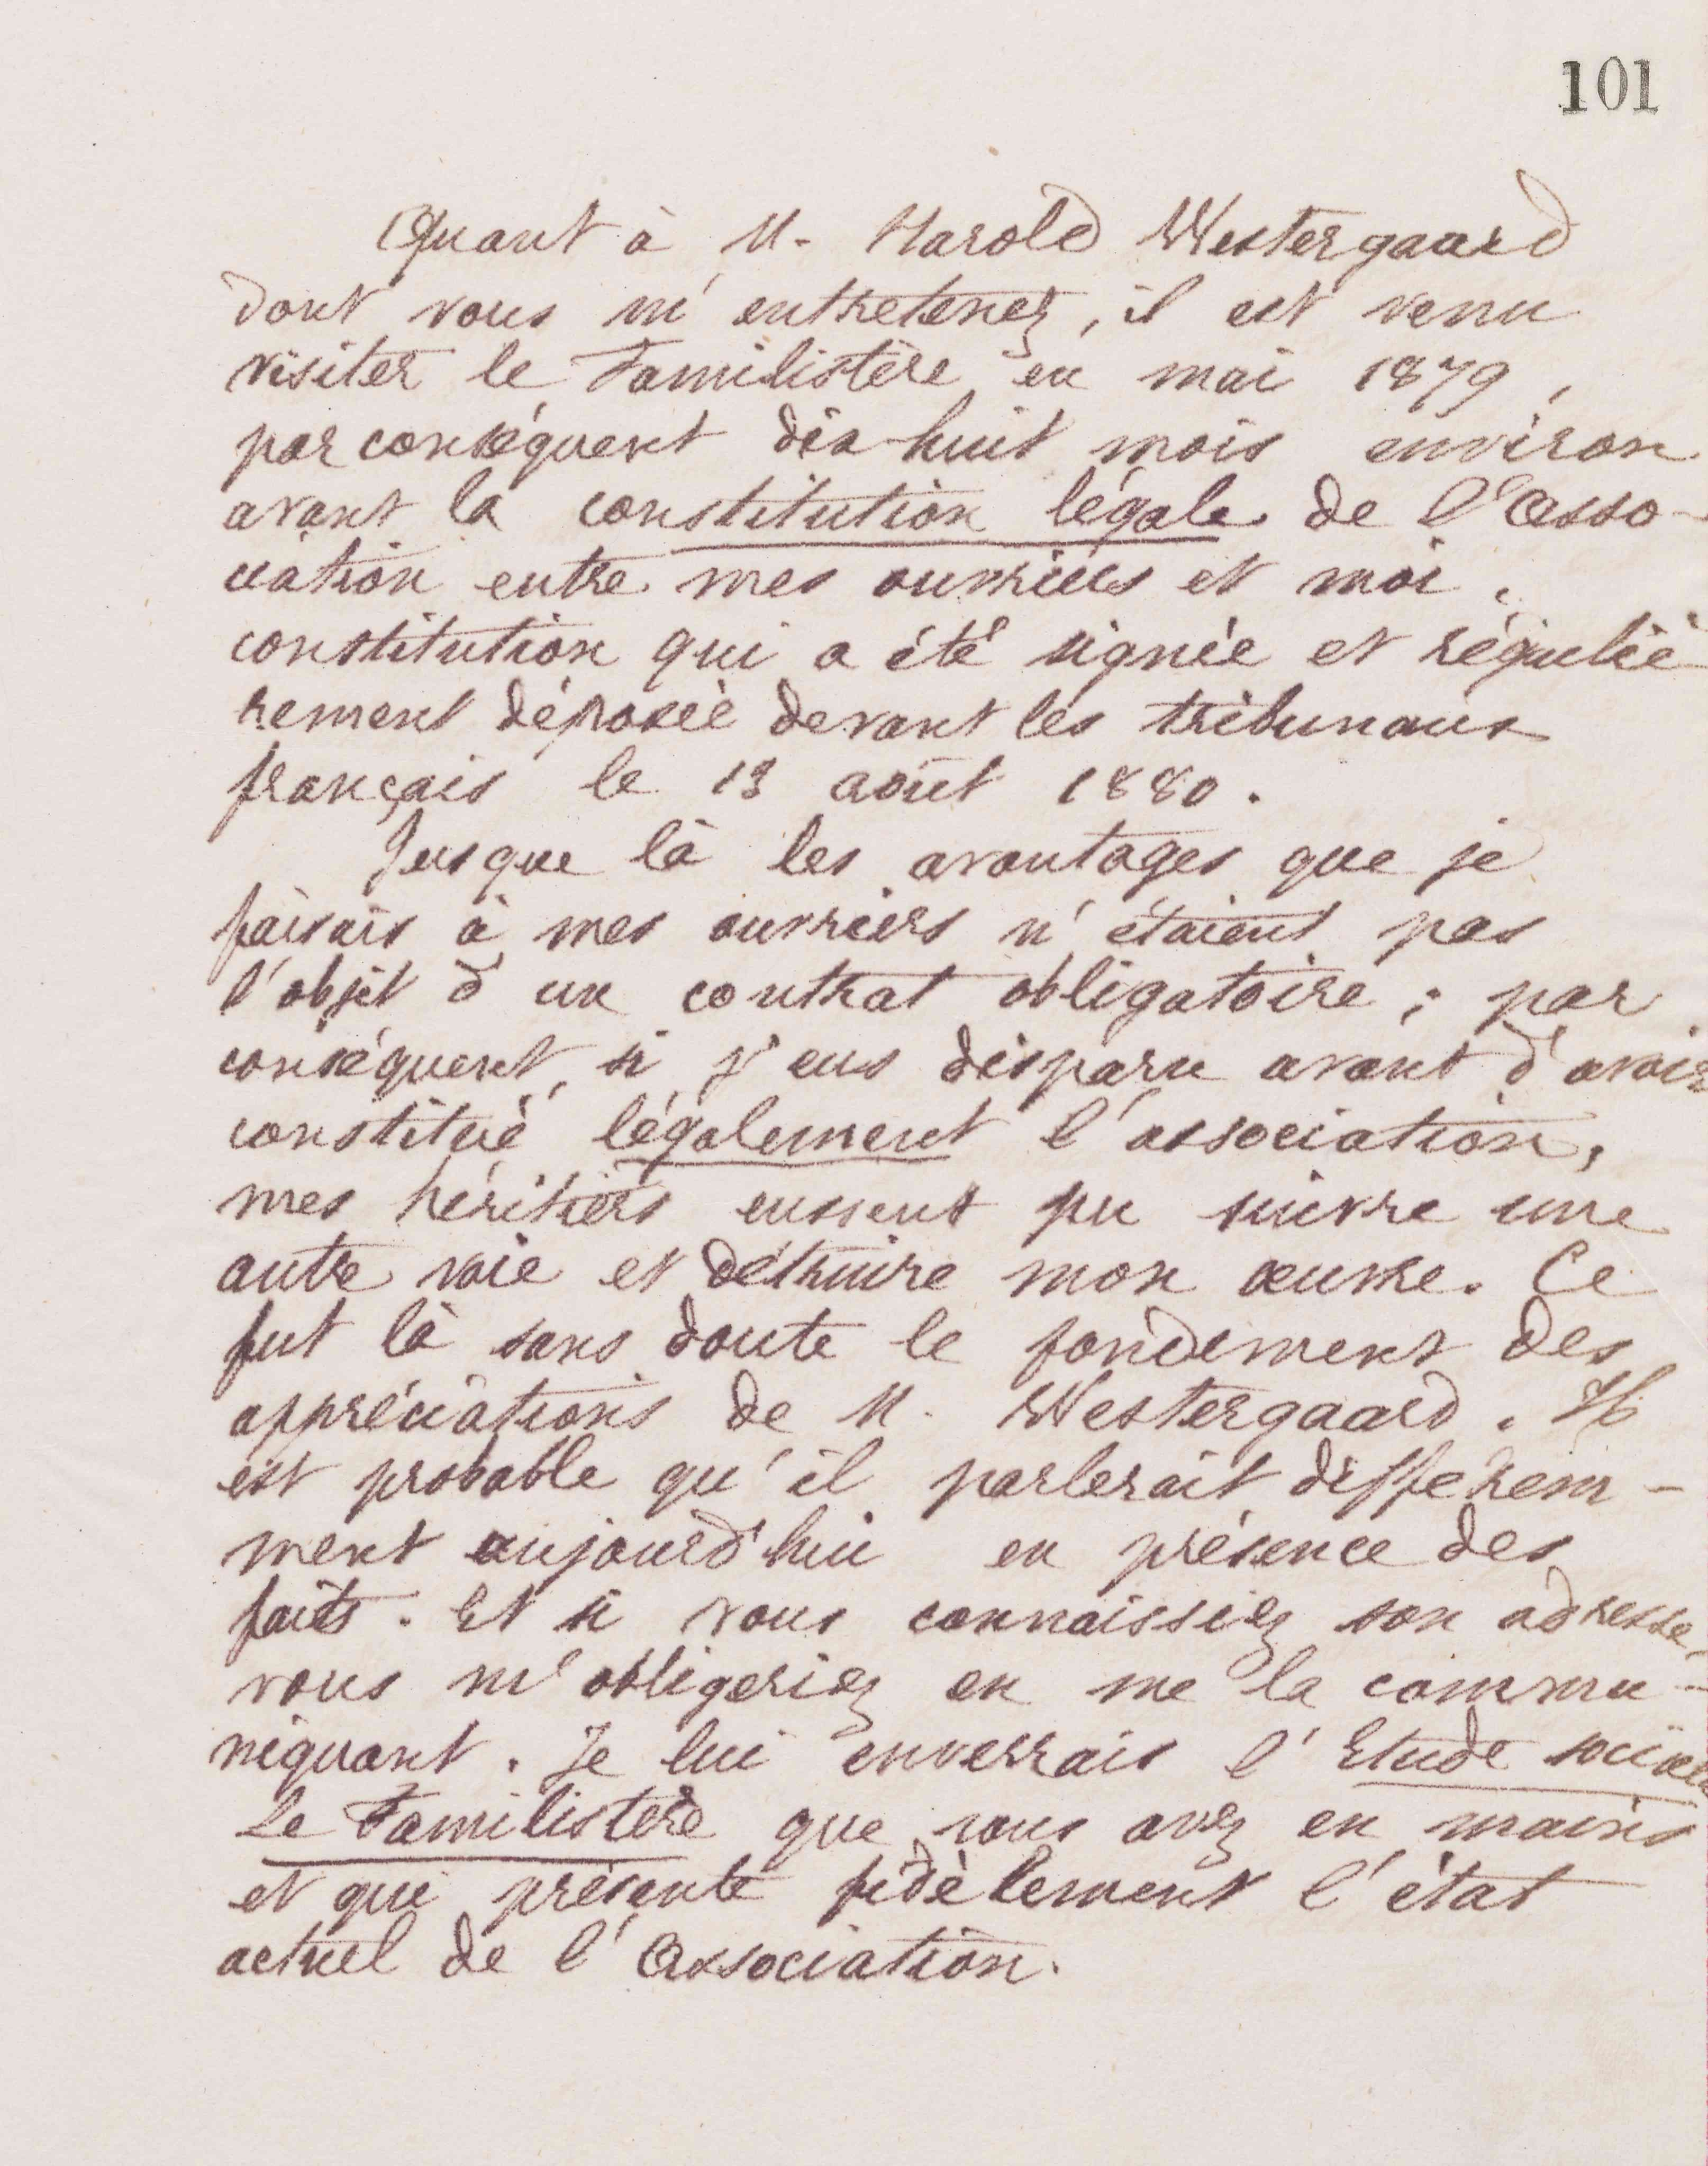 101
Quant à M. Harold Westergaard
dont vous m'entretenez, il est venu
visiter le Familistère en mai 1879,
par conséquent dix-huit mois environ
avant la constitution légale de l'Asso-
ciation entre mes ouvriers et moi,
constitution qui a été signée et réguliè
rement déposée devant les tribunaux
français le 13 août 1880.
Jusque là les avantages que je
faisais à mes ouvriers n'étaient pas
l'objet d'un contrat obligatoire ; par
conséquent, si j'eus disparu avant d'avoir
constitué légalement l'association,
mes héritiers eussent pu suivre une
autre voie et détruire mon œuvre. Ce
fut là sans doute le fondement des
appréciations de M. Westergaard. Il
est probable qu'il parlerait différem-
ment aujourd'hui en présence des
faits. Et si vous connaissiez son adresse,
vous m'obligeriez en me la commu-
niquant. Je lui enverrais l'Etude sociale
Le Familistère que vous avez en mains
et qui présente fidèlement l'état
actuel de l'Association.